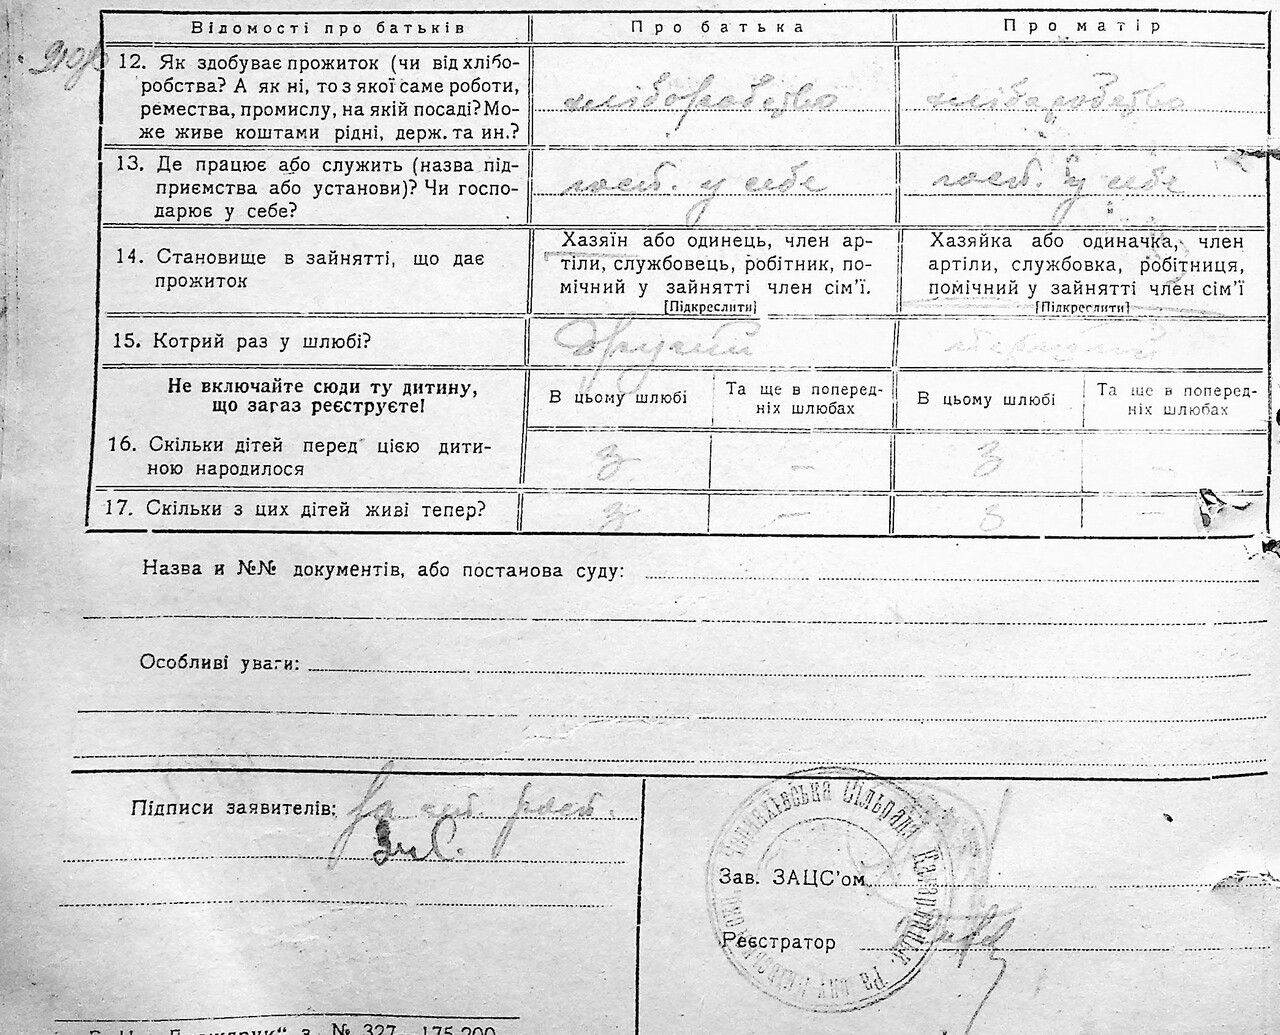 Відомості про батьків Про батька Про матір
12. Як здобуває прожиток (чи від хлібо-
робства? А як ні, то з якої саме роботи,
ремества, промислу, на якій посаді? Мо-
же живе коштами рідні, держ. та ин.?
хліборобство хліборобство
13. Де працює або служить (назва під-
приємства або установи)? Чи госпо-
дарює у себе?
госп. у себе госп. у себе
14. Становище в зайнятті, що дає
прожиток
Хазяїн або одинець, член ар-
тіли, службовець, робітник, по-
мічний у зайнятті член сім'ї.
[Підкреслити]
Хазяйка або одиначка, член
артіли, службовка, робітниця,
помічний у зайнятті член сім'ї
[Підкреслити]
15. Котрий раз у шлюбі? Другий первший
Не включайте сюди ту дитину,
що загаз реєструєте!
В цьому шлюбі
Та ще в поперед-
ніх шлюбах
В цьому шлюбі
Та ще в поперед-
ніх шлюбах
16. Скільки дітей перед цією дити-
ною народилося
3 – 3 –
17. Скільки з цих дітей живі тепер? 3 – 3 –
Назва и №№ документів, або постанова суду:
Особливі уваги:
Підписи заявителів:
Зав. ЗАЦС'ом
Реєстратор
Сільрада
з. № 327—175.200